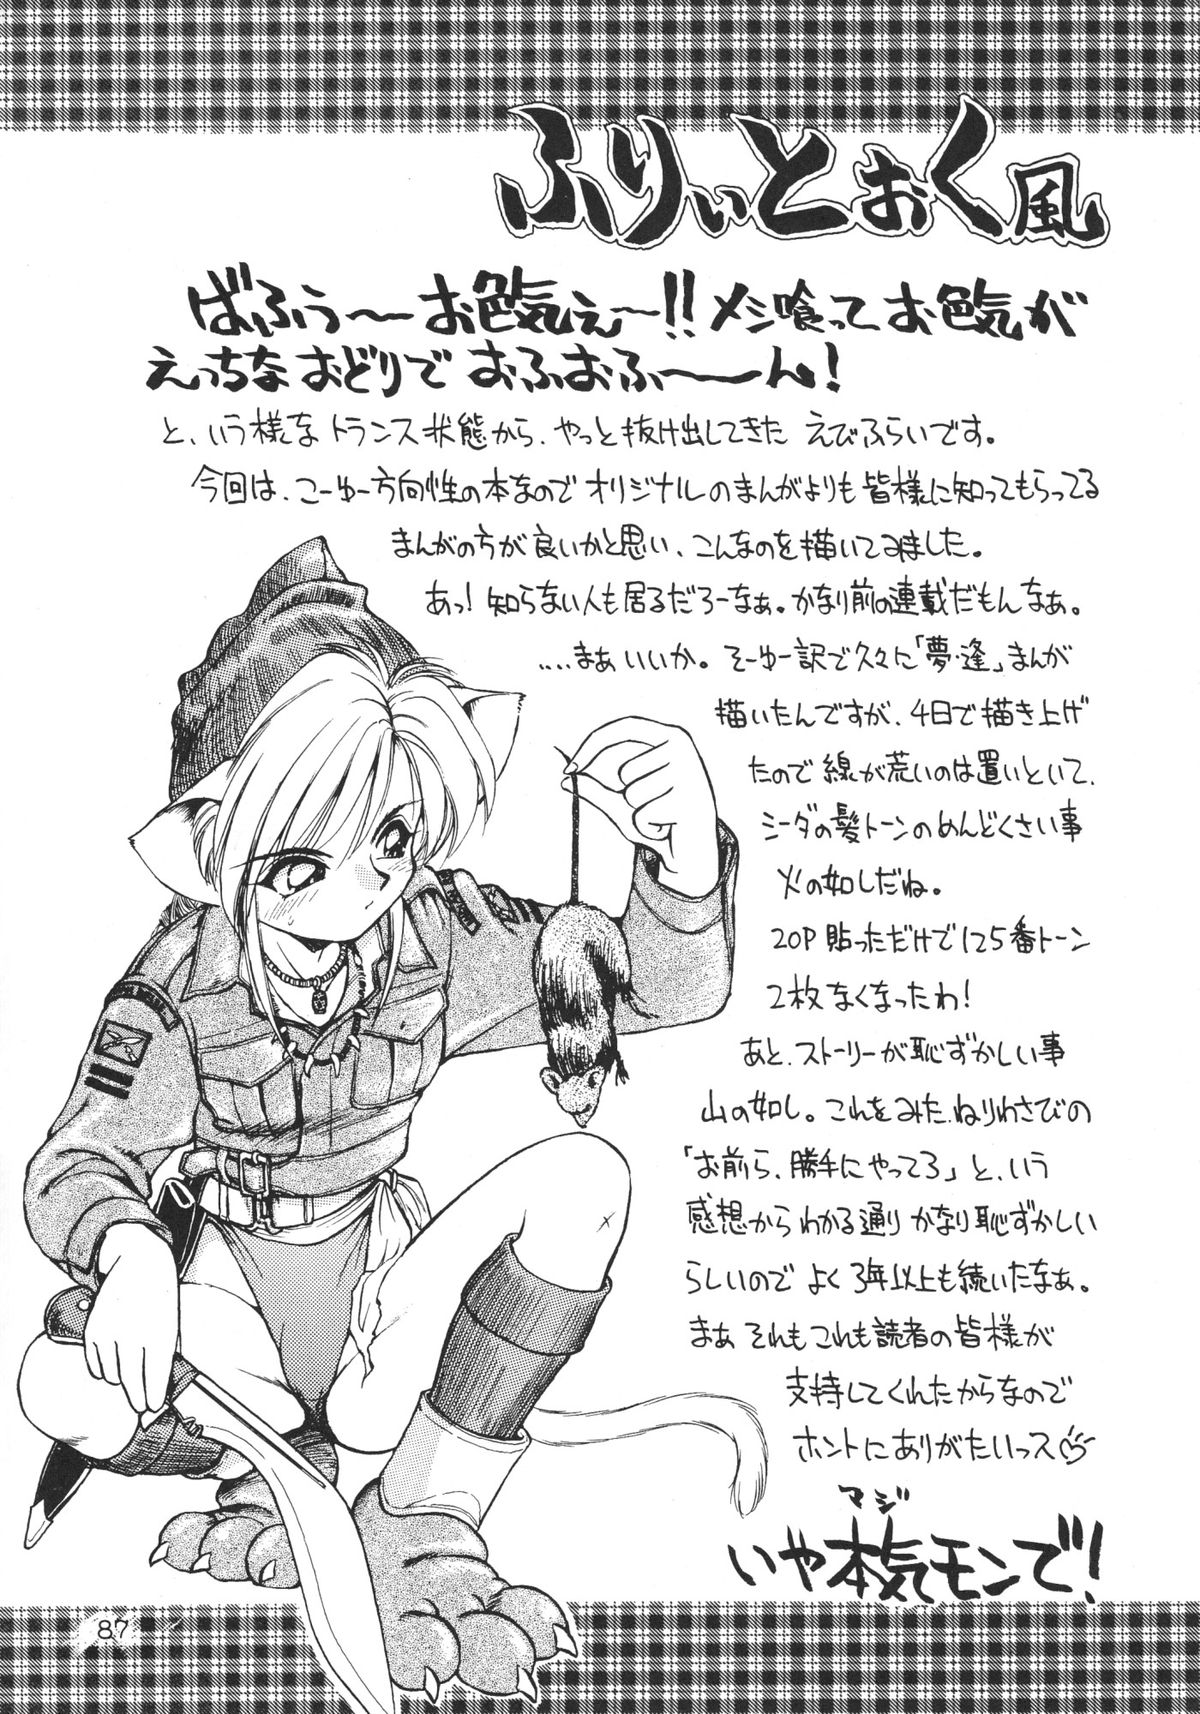 ふりぃとぉく風
ばふぅ〜お色気ぇ〜!!メシ喰ってお色気が
えっちなおどりでおふおふ〜ん!
と、いう様なトランス状態から、やっと抜け出してきたえびふらいです。
今回は、こーゆー方向性の本なのでオリジナルのまんがよりも皆様に知ってもらってる
まんがの方が良いかと思い、こんなのを描いてみました。
あっ!知らない人も居るだろーなぁ。かなり前の連載だもんなぁ。
....まぁいいか。そーゆー訳で久々に「夢・逢」まんが
描いたんですが、4日で描き上げ
たので線が荒いのは置いといて、
シーダの髪トーンのめんどくさい事
火の如しだね。
20P貼っただけで125番トーン
2枚なくなったわ!
あと、ストーリーが恥ずかしい事
山の如し。これをみた、ねりわさびの
「お前ら、勝手にやってろ」と、いう
感想からわかる通りかなり恥ずかしい
らしいのでよく3年以上も続いたなぁ。
まぁそれもこれも読者の皆様が
支持してくれたからなので
ホントにありがたいっス
マジ
いや本気モンで!
87